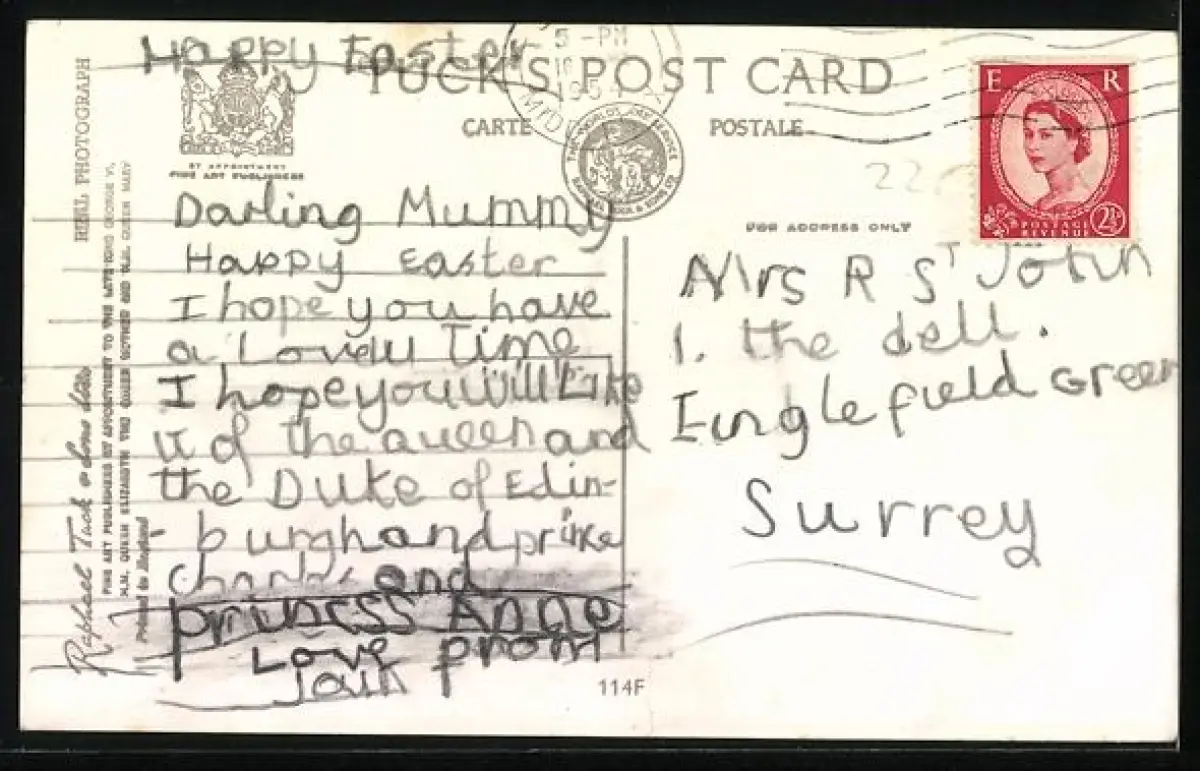 Happy Easter
TUCK'S POST CARD
CARTE POSTALE
5-PM
195
BY APPOINTMENT
FINE ART PUBLISHERS
E R
POSTAGE
REVENUE
2½
FOR ADDRESS ONLY
Darling Mummy
Happy Easter
I hope you have
a Lovely Time
I hope you will Like
it of the queen and
the Duke of Edin-
burgh and prince
charles and
princess Anne
Love from
Iain
Mrs R St John
1. the dell.
Englefield Green
Surrey
REAL PHOTOGRAPH
Raphael Tuck & Sons Ltd.
FINE ART PUBLISHERS BY APPOINTMENT TO THE LATE KING GEORGE VI,
H.M. QUEEN ELIZABETH THE QUEEN MOTHER AND H.M. QUEEN MARY
Printed in England
114F